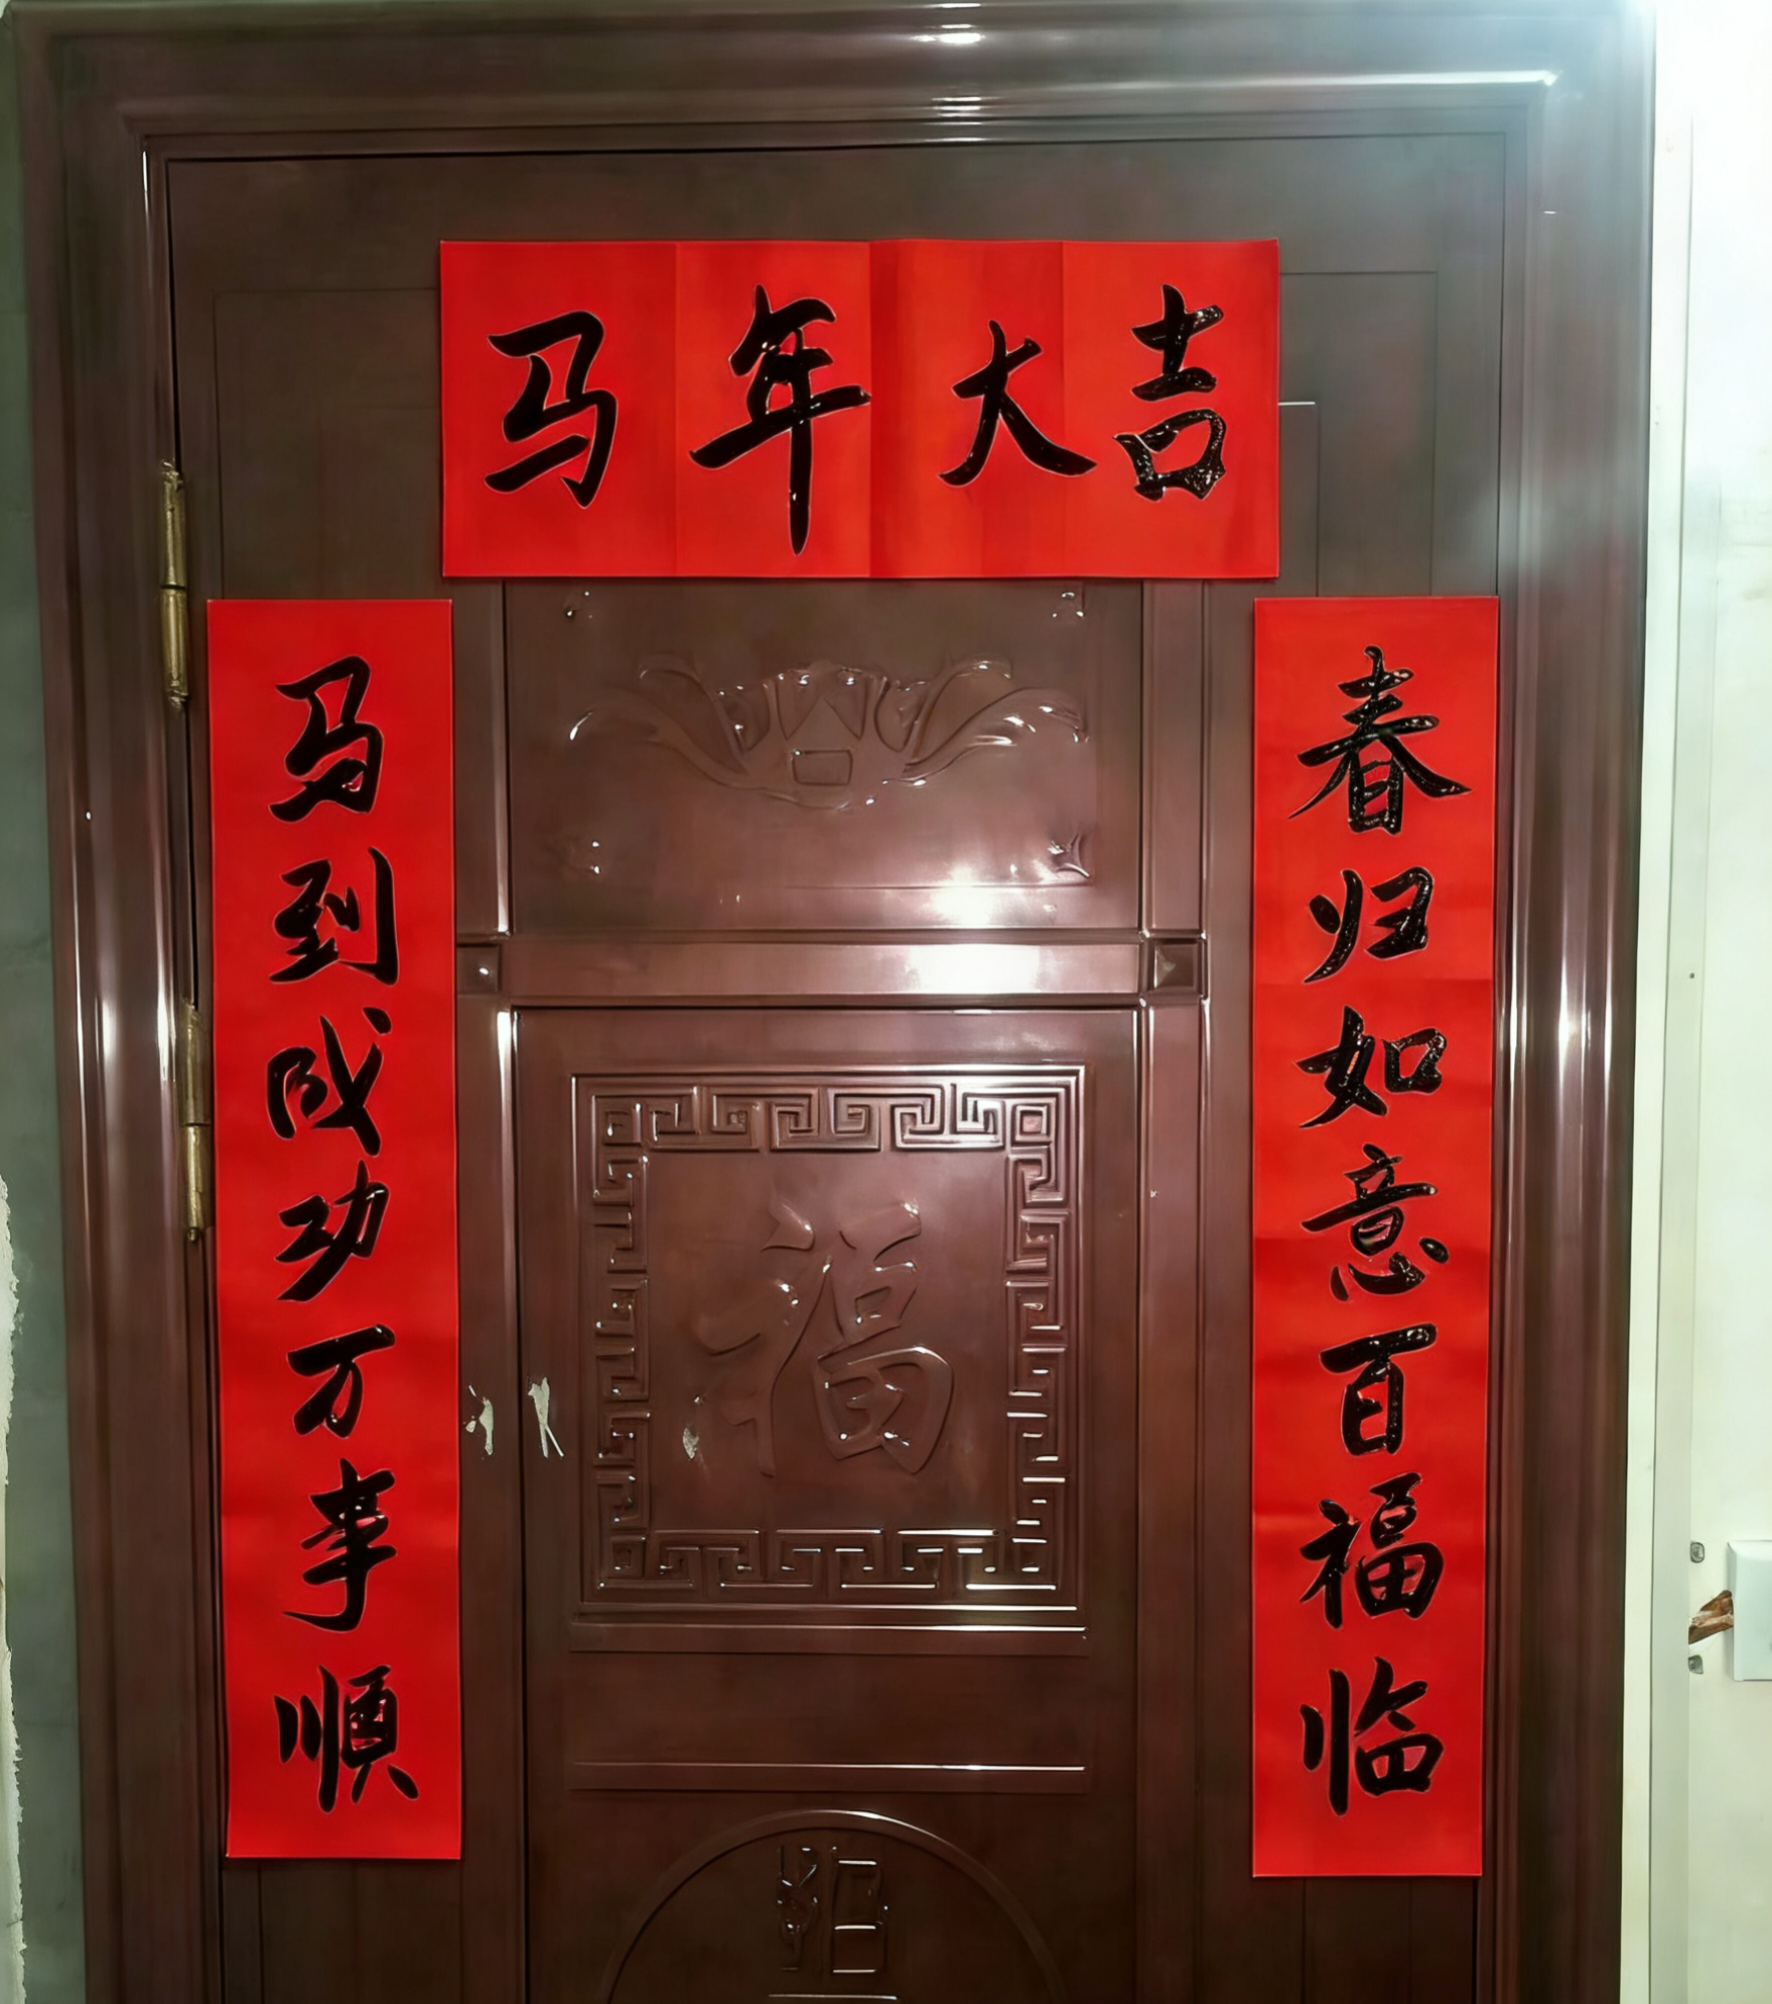 马年大吉
马到成功万事順
春归如意百福临
福